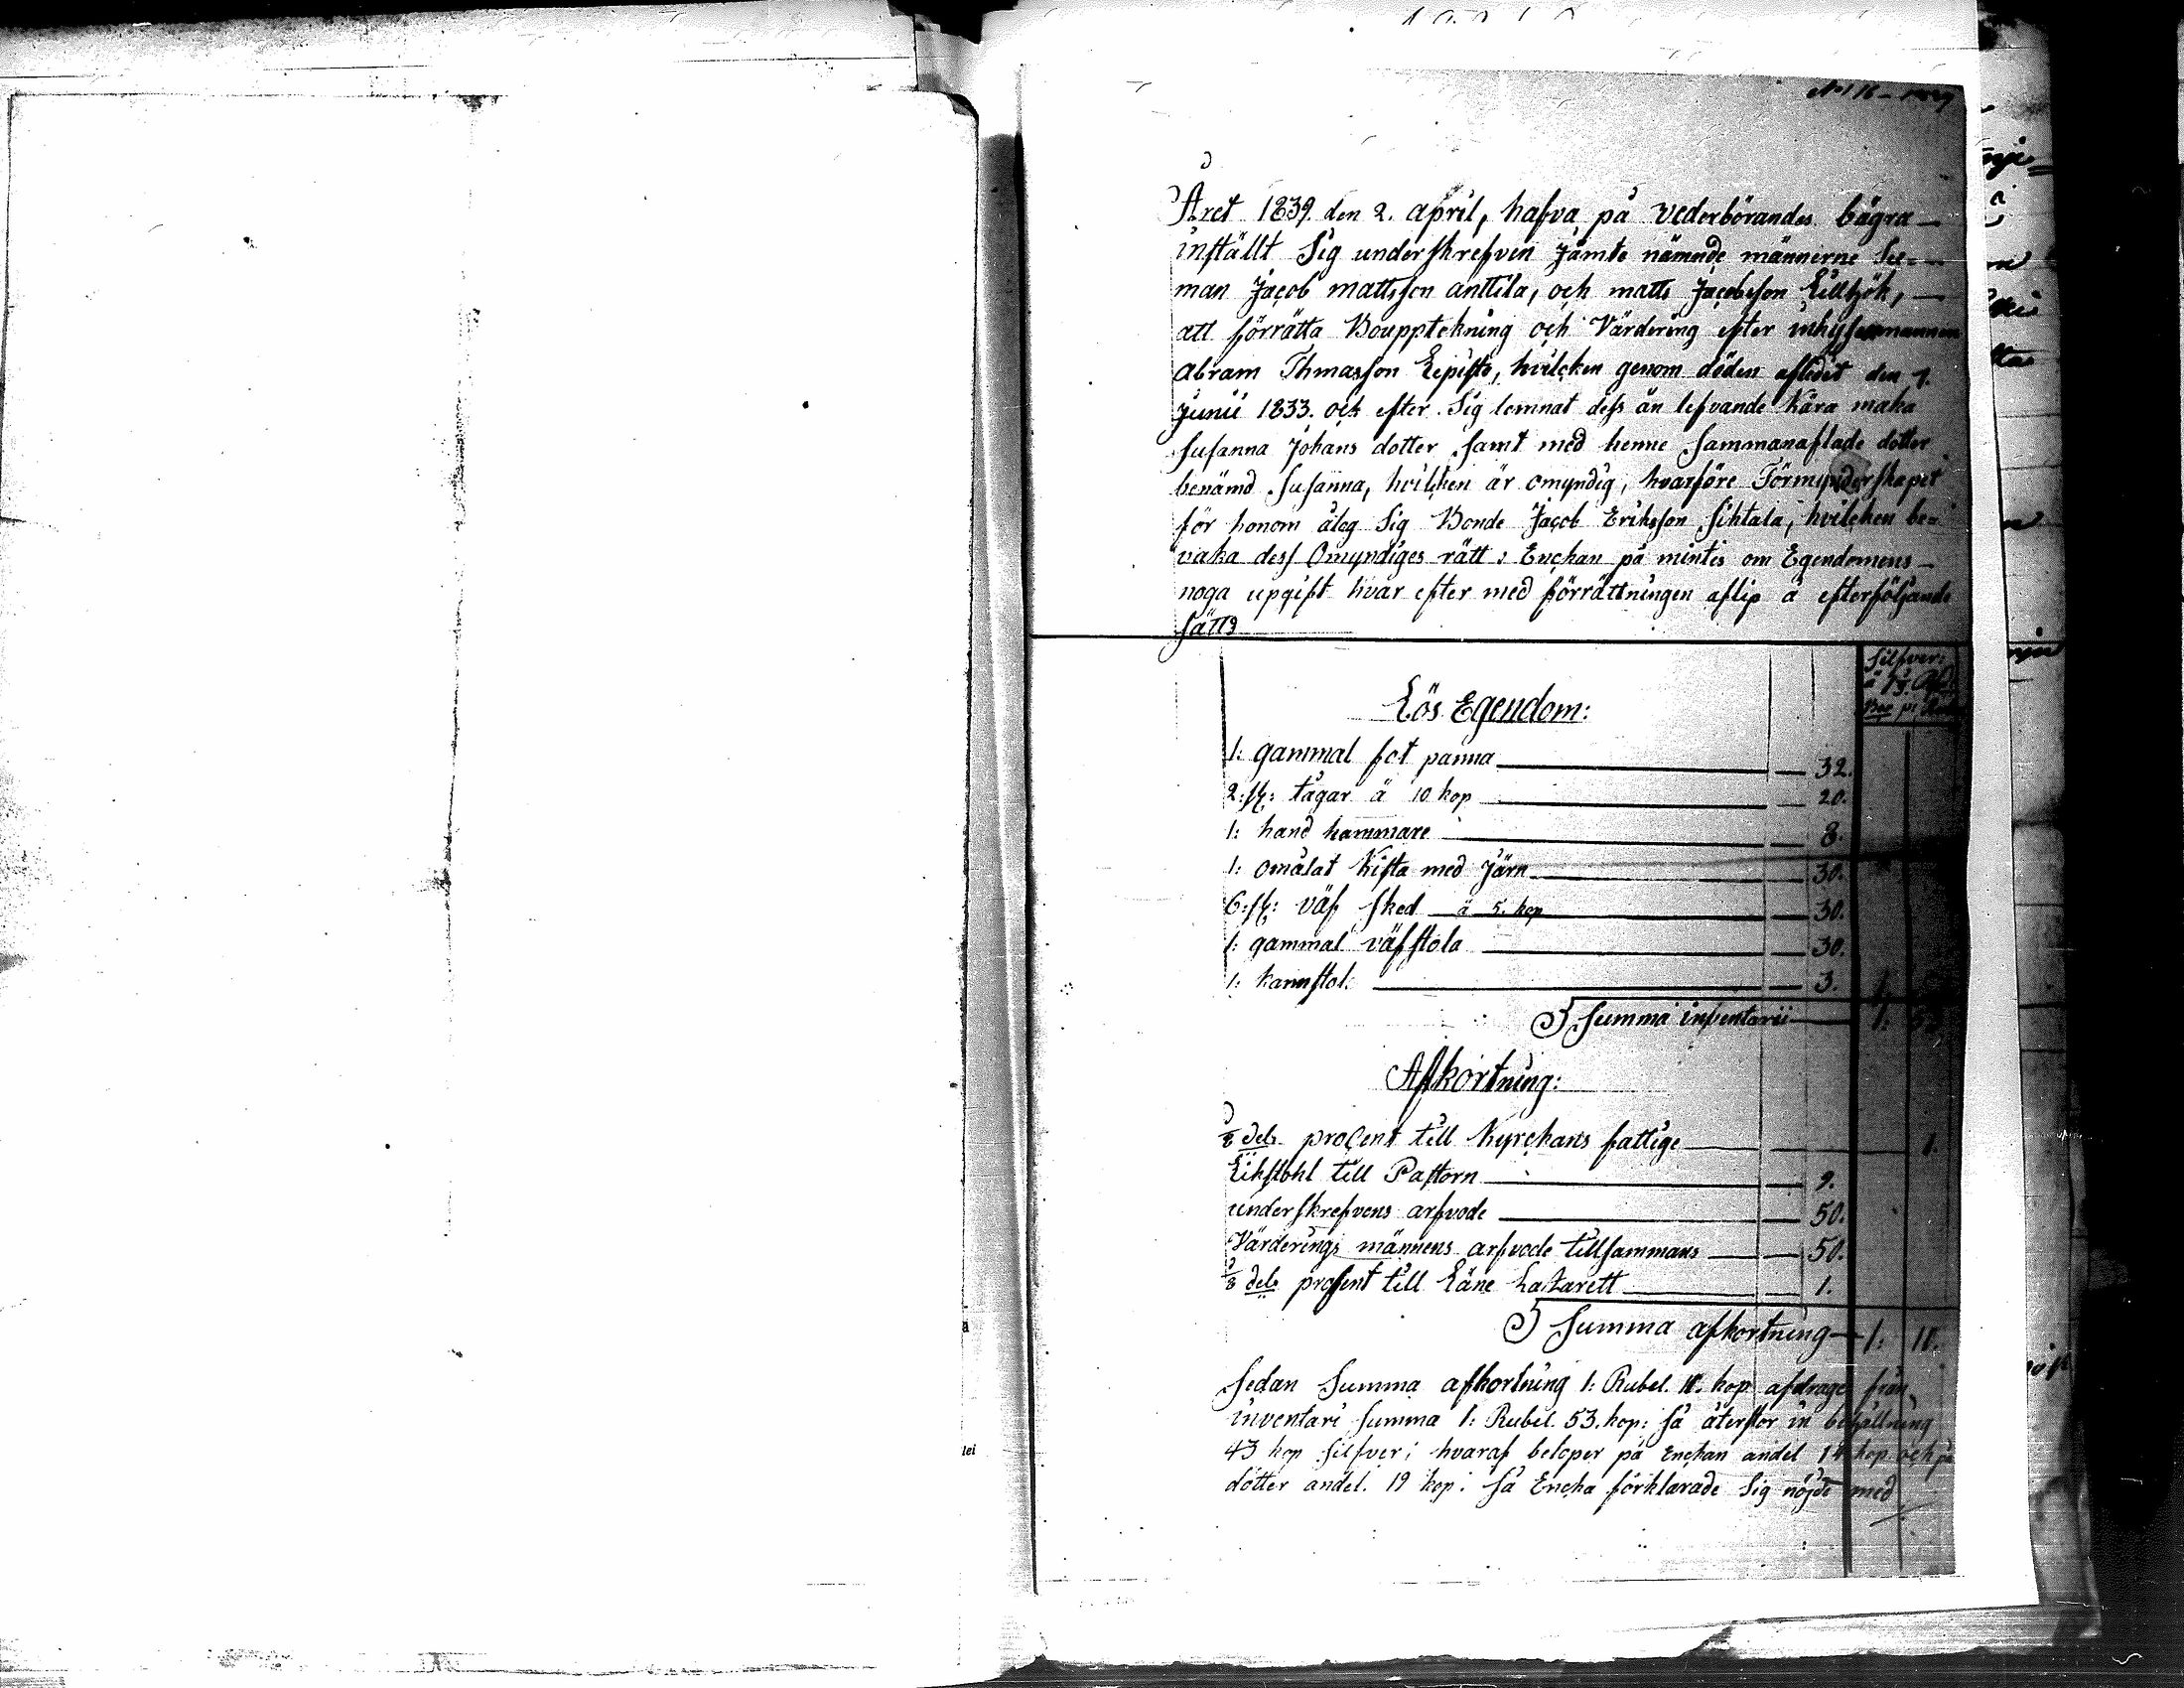 Året 1839. den 2. april, hafva på vederbörandes bägra
inställt Sig underskrefven Jämte nämnde männerne See-
man Jacob mattsson anttila, och matts Jacobsson Lilltjök,
att förrätta Bouppteckning och Värdering efter inhysesmannen
Abram Thmasson Lepistö, hvilcken genom döden afledit den 7.
Junii 1833. och efter Sig lemnat dess än lefvande Kära maka
Susanna Johans dotter samt med henne Sammanaflade dotter
benämd Susanna, hvilken är omyndig, hvarföre Förmynderskapet
för honom åtog Sig Bonde Jacob Eriksson Sihtala, hvilcken be-
vaka dess Omyndiges rätt: Enckan på mintes om Egendomens
noga upgift hvar efter med förrättningen aflip å efterföljande
sätt:
Silfver:
Lös Egendom:
1: gammal fot panna 32.
2: st: tågar à 10 kop 20.
1: hand hammare 8.
1: omålat Kista med Järn 30.
6: st: väf sked à 5. kop 30.
1: gammal väfstola 30.
1: kannstol. 3.
Summa inventarii 1: 53
Afkortning:
1/8 dels procent till Kyrckans fattige 1.
Likstohl till Pastorn 9.
underskrefvens arfvode 50.
Värderings männens arfvode tillsammans 50.
1/8 dels prosent till Läne Lazarett 1.
Summa afkortning 1: 11.
Sedan Summa afkortning 1: Rubel. 11. kop afdrages från
inventari Summa 1: Rubel. 53. kop: så återstor in behållning
43 kop silfver; hvaraf beloper på Enckan andel 14 kop och på
dotter andel. 19 kop: så Encka förklarade Sig nöjde med